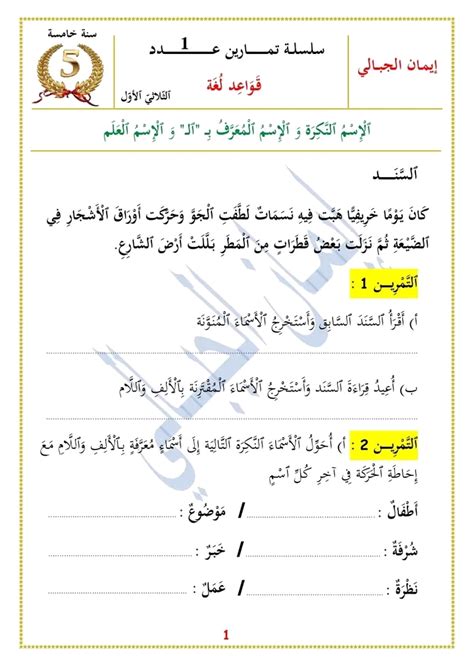 إيمان الجبالي
سلسلة تمـــارين عـــ1ـــدد
قَوَاعِد لُغَة
سنة خامسة
5
الثلاثيّ الأوّل
اَلْإِسْمُ اَلنَّكِرَة وَ اَلْإِسْمُ اَلْمُعَرَّفُ بِـ "الـ" وَ اَلْإِسْمُ اَلْعَلَم
اَلسَّنَــد
كَانَ يَوْمًا خَرِيفِيًّا هَبَّت فِيهِ نَسَمَاتٌ لَطَّفَتِ اَلْجَوَّ وَحَرَّكَت أَوْرَاقَ اَلْأَشْجَارِ فِي
اَلضَّيْعَةِ ثُمَّ نَزَلَت بَعْضُ قَطَرَاتٍ مِنَ اَلْمَطَرِ بَلَّلَتْ أَرْضَ اَلشَّارِعِ.
اَلتَّمْرِيــن 1 :
أ) أَقْرَأُ اَلسَّنَدَ اَلسَّابِق وَأَسْتَخْرِجُ اَلْأَسْمَاءَ اَلْمُنَوَّنَة
ب) أُعِيدُ قِرَاءَةَ اَلسَّنَد وَأَسْتَخْرِجُ اَلْأَسْمَاءَ اَلْمُقْتَرِنَة بِاَلْأَلِفِ وَاَللَّام
اَلتَّمْرِيــن 2 : أ) أُحَوِّلُ اَلْأَسْمَاءَ اَلنَّكِرَة اَلتَّالِيَة إِلَى أَسْمَاءٍ مُعَرَّفَةٍ بِاَلْأَلِفِ وَاَللَّامِ مَعَ
إِحَاطَةِ اَلْحَرَكَة فِي آخِرِ كُلِّ اَسْمٍ
أَطْفَالٌ : / مَوْضُوعٌ :
شُرْفَةٌ : / خَبَرٌ :
نَظْرَةٌ : / عَمَلٌ :
1
إيمان الجبالي